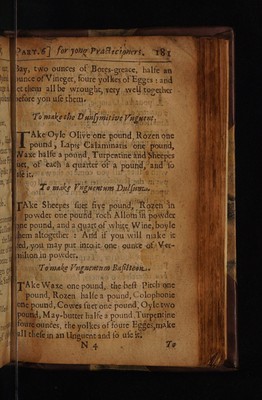 PART.6] for yong Practicioners. 181
Bay, two ounces of Bores-grease, halfe an
ounce of Vineger, foure yolkes of Egges: and
let them all be wrought, very well together
before you use them.
To make the Vnguent:
TAke Oyle Olive one pound, Rozen one
pound, Lapis Calaminaris one pound,
Waxe halfe a pound, Turpentine and Sheepes
suet, of each a quarter of a pound, and so
use it.
To make Vnguentum
TAke Sheepes suet five pound, Rozen in
powder one pound, roch Allom in powder
one pound, and a quart of white Wine, boyle
them altogether: And if you will make it
red, you may put into it one ounce of Ver-
milion in powder.
To make Vnguentum Basilicon.
TAke Waxe one pound, the best Pitch one
pound, Rozen halfe a pound, Colophonie
one pound, Cowes suet one pound, Oyle two
pound, May-butter halfe a pound, Turpentine
foure ounces, the yolkes of foure Egges, make
all these in an Unguent and so use it.
N 4 To